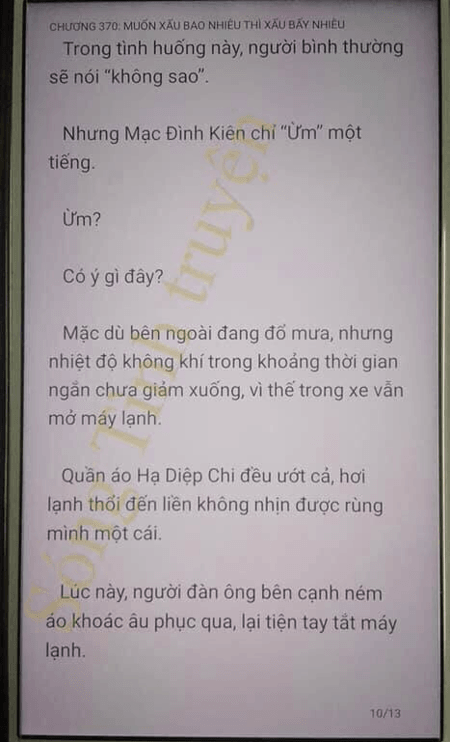 CHƯƠNG 370: MUỐN XẤU BAO NHIÊU THÌ XẤU BẤY NHIÊU
Trong tình huống này, người bình thường
sẽ nói “không sao”.
Nhưng Mạc Đình Kiên chỉ “Ừm” một
tiếng.
Ừm?
Có ý gì đây?
Mặc dù bên ngoài đang đổ mưa, nhưng
nhiệt độ không khí trong khoảng thời gian
ngắn chưa giảm xuống, vì thế trong xe vẫn
mở máy lạnh.
Quần áo Hạ Diệp Chi đều ướt cả, hơi
lạnh thổi đến liền không nhịn được rùng
mình một cái.
Lúc này, người đàn ông bên cạnh ném
áo khoác âu phục qua, lại tiện tay tắt máy
lạnh.
10/13
Sóng Tình truyện